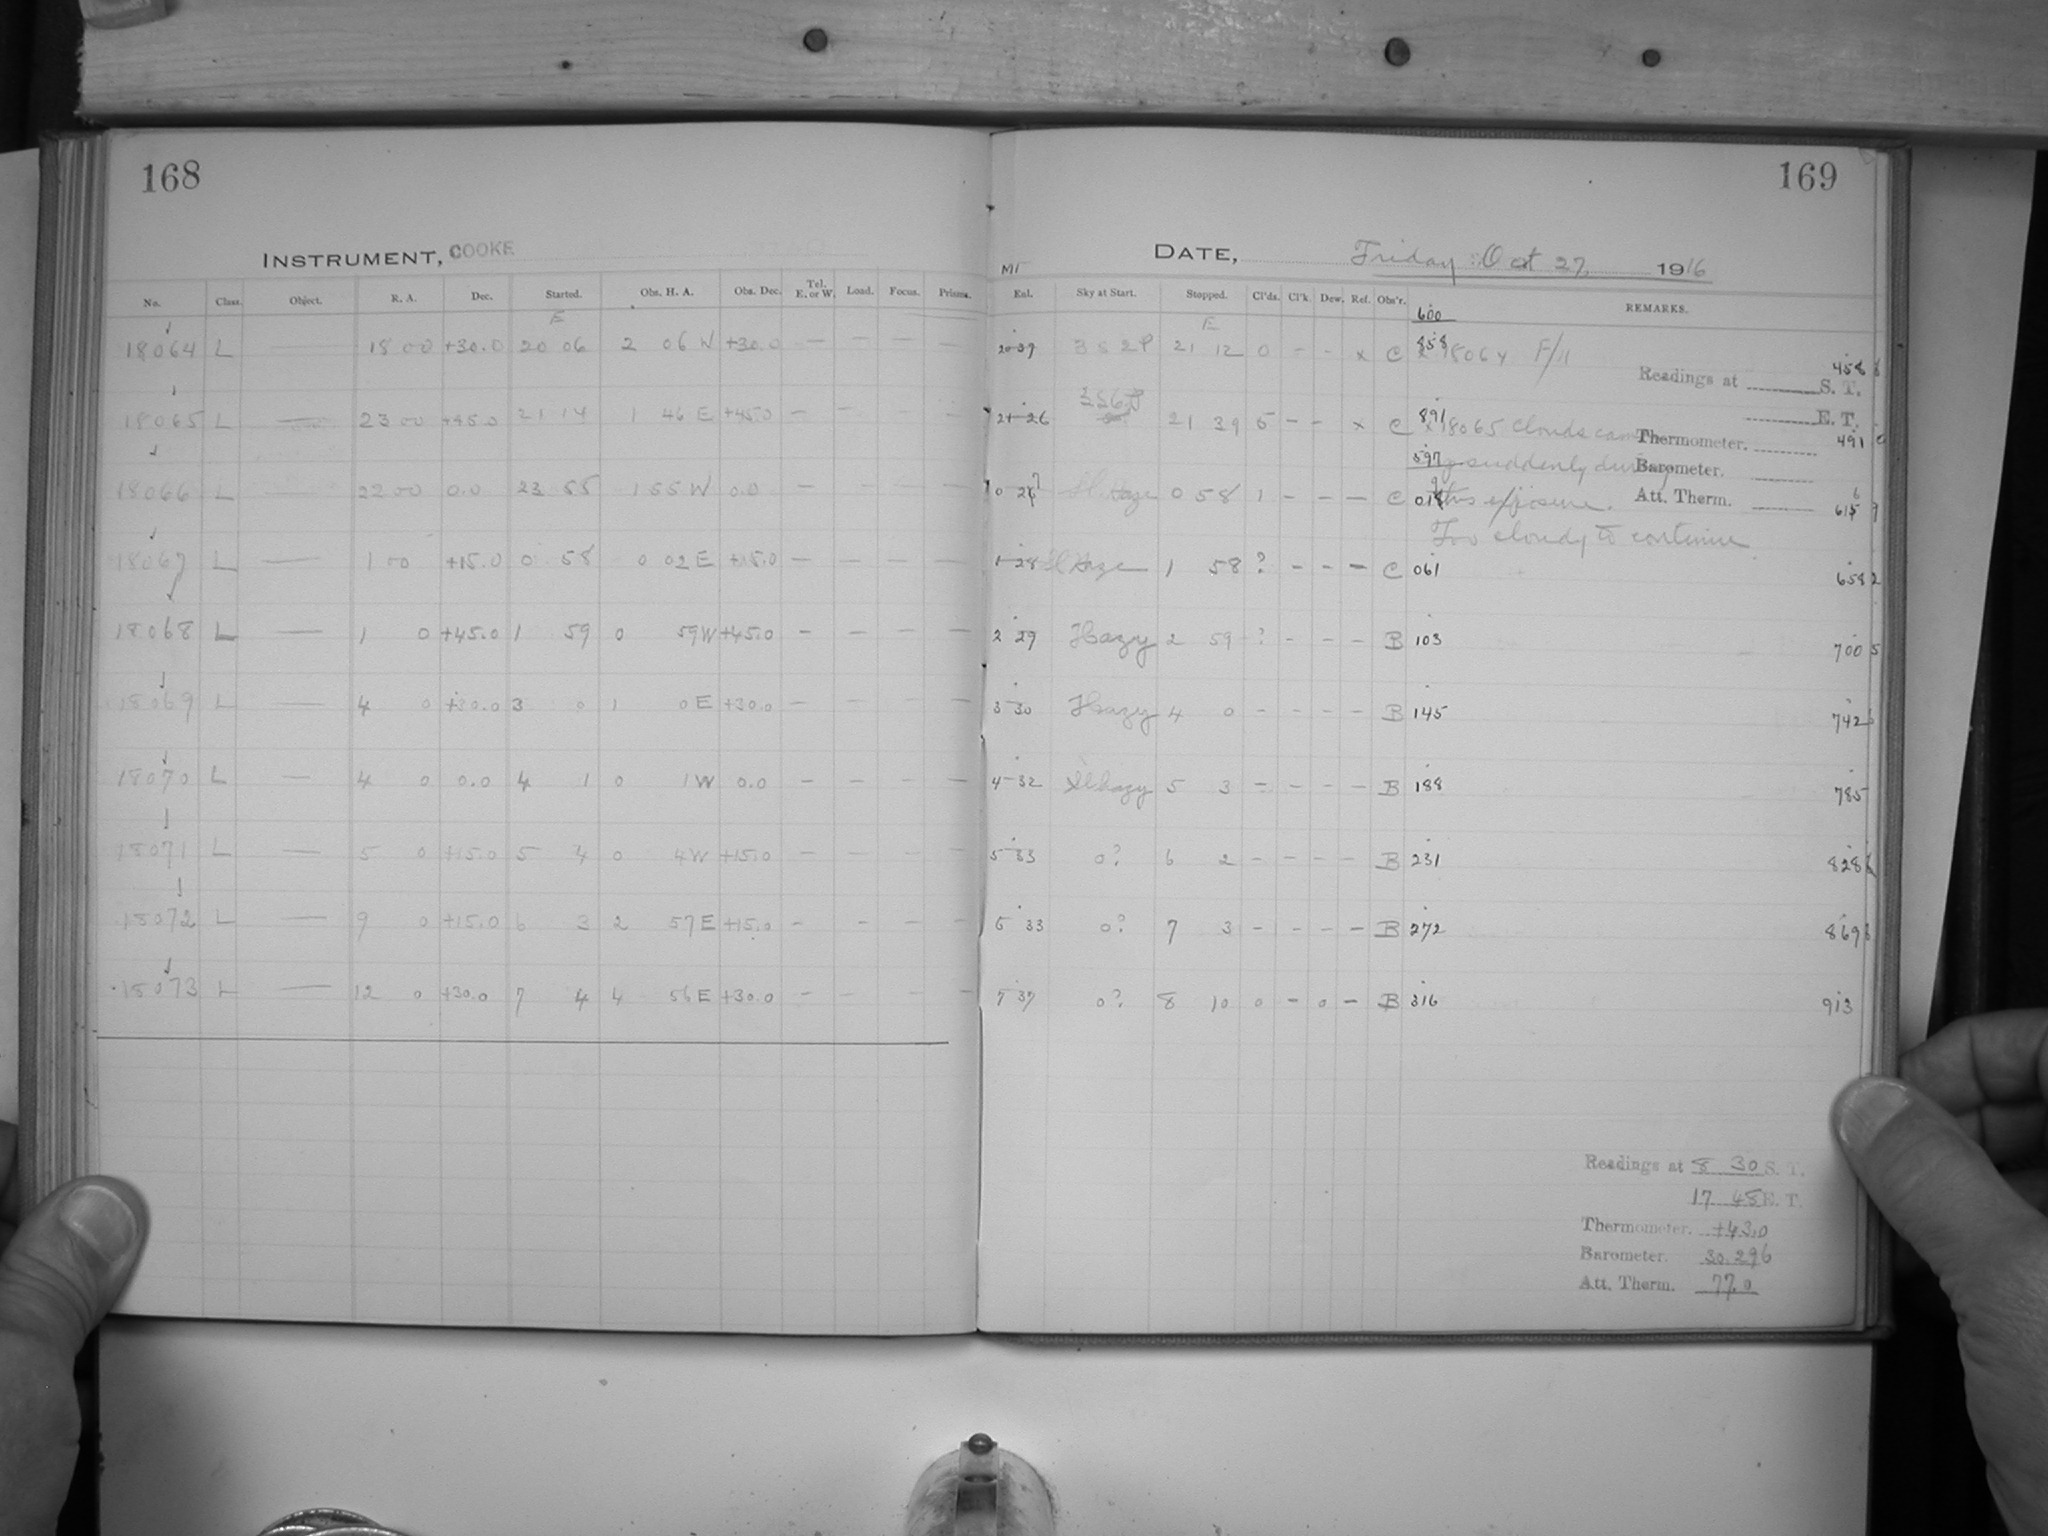 168
INSTRUMENT, COOKE
No. Class. Object. R. A. Dec. Started. Obs. H. A. Obs. Dec. Tel. E. or W. Load. Focus. Prisms.
E
18064 L — 18 00 +30.0 20 06 2 06 W +30.0 — — — —
18065 L — 23 00 +45.0 21 14 1 46 E +45.0 — — — —
18066 L — 22 00 0.0 23 55 1 55 W 0.0 — — — —
18067 L — 1 00 +15.0 0 58 0 02 E +15.0 — — — —
18068 L — 1 0 +45.0 1 59 0 59 W +45.0 — — — —
18069 L — 4 0 +30.0 3 0 1 0 E +30.0 — — — —
18070 L — 4 0 0.0 4 1 0 1 W 0.0 — — — —
18071 L — 5 0 +15.0 5 4 0 4 W +15.0 — — — —
18072 L — 9 0 +15.0 6 3 2 57 E +15.0 — — — —
18073 L — 12 0 +30.0 7 4 4 56 E +30.0 — — — —
169
DATE, Friday: Oct 27, 1916
MT
Eul. Sky at Start. Stopped. Cl'ds. Cl'k. Dew. Ref. Obs'r. REMARKS.
600
E
20 39 3 S 2 P 21 12 0 - - x C 858 x 18064 F/11 458
Readings at S. T.
E. T.
21 26 21 39 5 - - x C 891 x 18065 Clouds came 491
Thermometer.
597 up suddenly during
Barometer.
0 Sl. Haze 0 58 1 - - - C this exposure.
Att. Therm.
Too cloudy to continue
1 28 Sl Haze 1 58 ? - - - C 061 658
2 29 Hazy 2 59 ? - - - B 103 700
3 30 Hazy 4 0 - - - - B 145 742
4 32 Sl hazy 5 3 - - - - B 188 785
5 33 0? 6 2 - - - - B 231 828
6 33 0? 7 3 - - - - B 272 869
7 37 0? 8 10 0 - 0 - B 316 913
Readings at 8 30 S. T.
17 48 E. T.
Thermometer. +43.0
Barometer. 30.296
Att. Therm. 77.0